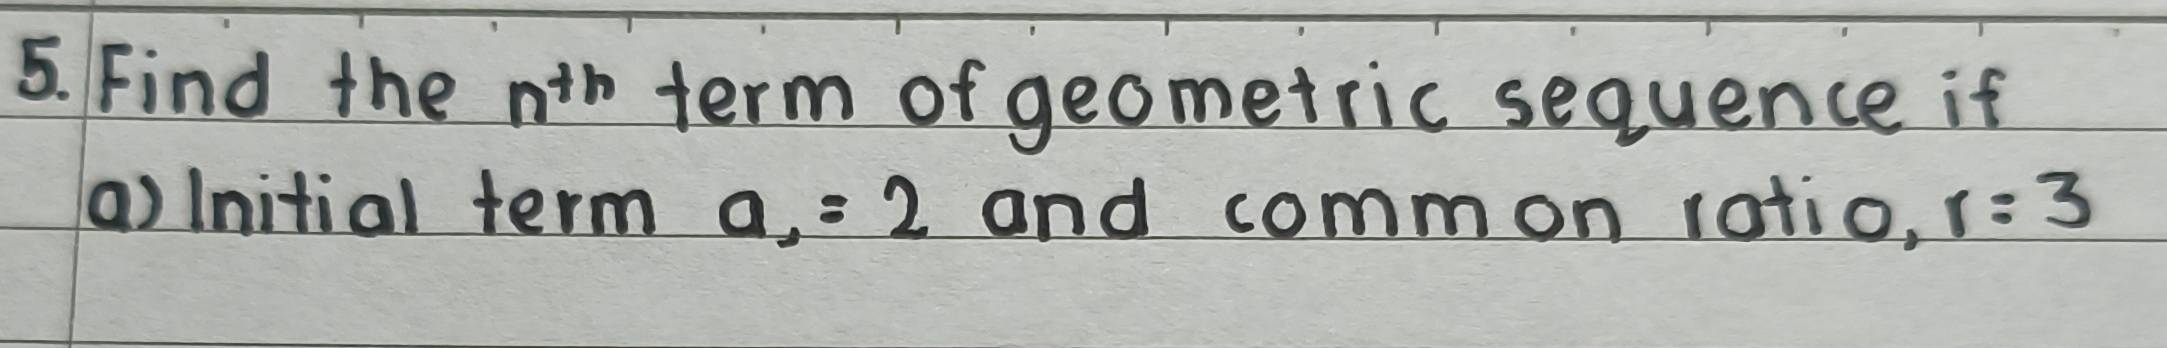 5. Find the nth term of geometric sequence if
a) Initial term a, = 2 and common ratio, r = 3